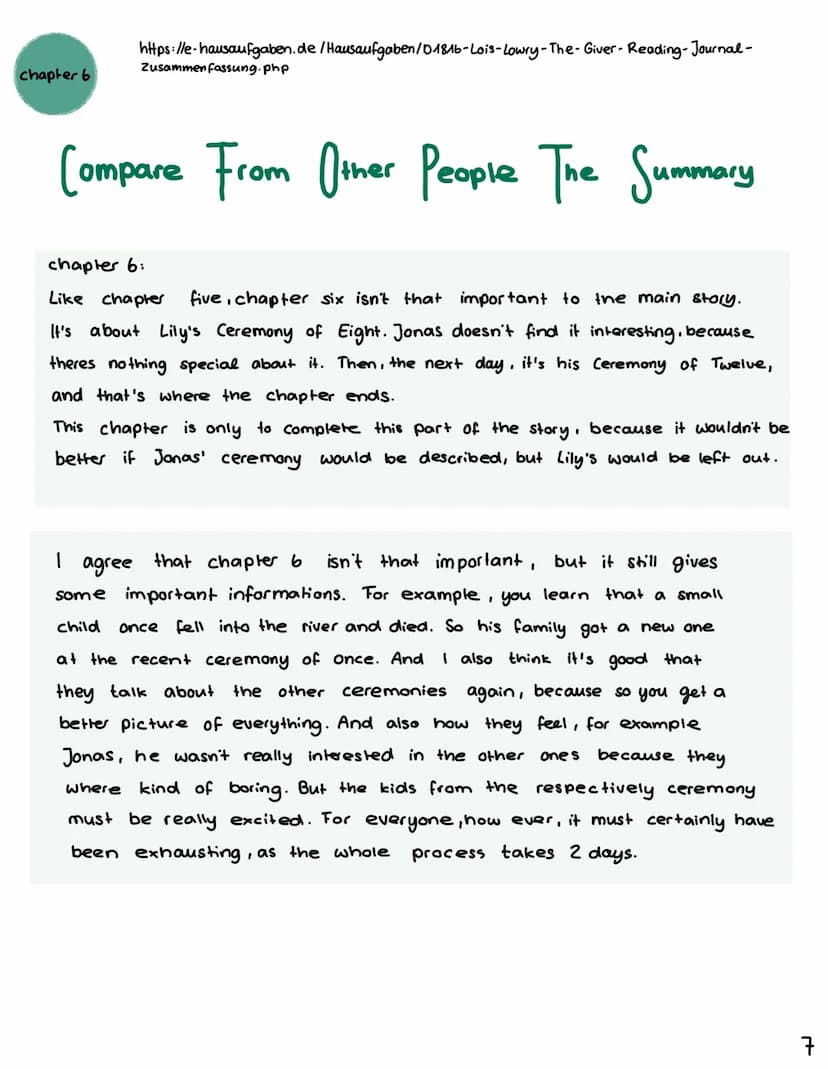 chapter 6
https://e-hausaufgaben.de/Hausaufgaben/D1816-Lois-Lowry-The-Giver-Reading-Journal-
Zusammenfassung.php
Compare From Other People The Summary
chapter 6:
Like chapter five, chapter six isn't that important to the main story.
It's about Lily's Ceremony of Eight. Jonas doesn't find it interesting, because
theres nothing special about it. Then, the next day, it's his Ceremony of Twelve,
and that's where the chapter ends.
This chapter is only to complete this part of the story, because it wouldn't be
better if Jonas' ceremony would be described, but Lily's would be left out.
I agree that chapter 6 isn't that important, but it still gives
some important informations. For example, you learn that a small
child once fell into the river and died. So his family got a new one
at the recent ceremony of once. And I also think it's good that
they talk about the other ceremonies again, because so you get a
better picture of everything. And also how they feel, for example
Jonas, he wasn't really interested in the other ones because they
where kind of boring. But the kids from the respectively ceremony
must be really excited. For everyone, how ever, it must certainly have
been exhausting, as the whole process takes 2 days.
7